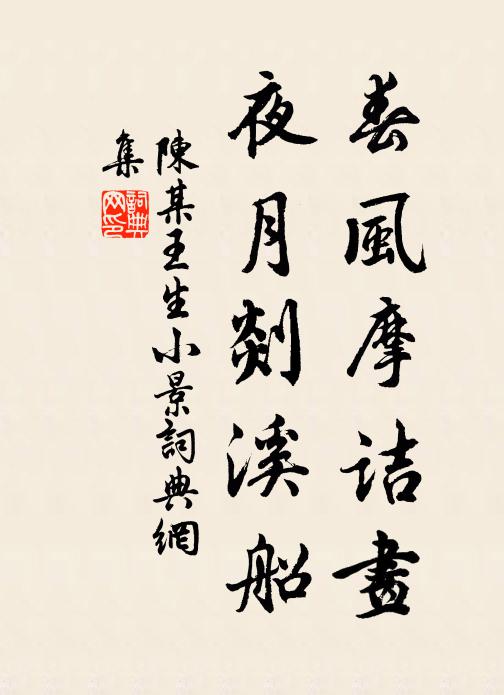 春風摩詰畫
夜月剡溪船
陳某王生小景詞典網
集
詞典網印